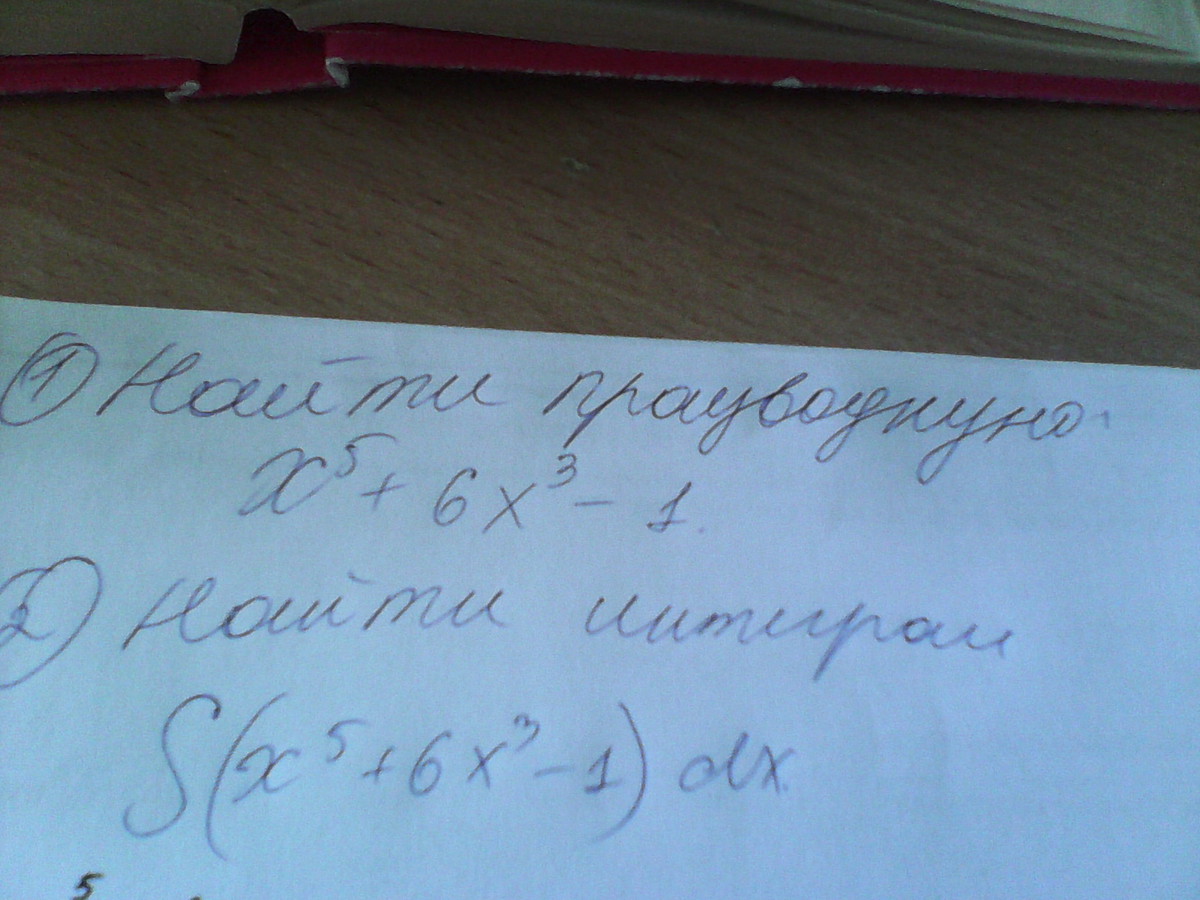 ① Найти прауводную
x⁵ + 6x³ - 1.
② Найти интиграл
∫(x⁵ + 6x³ - 1) dx.
5